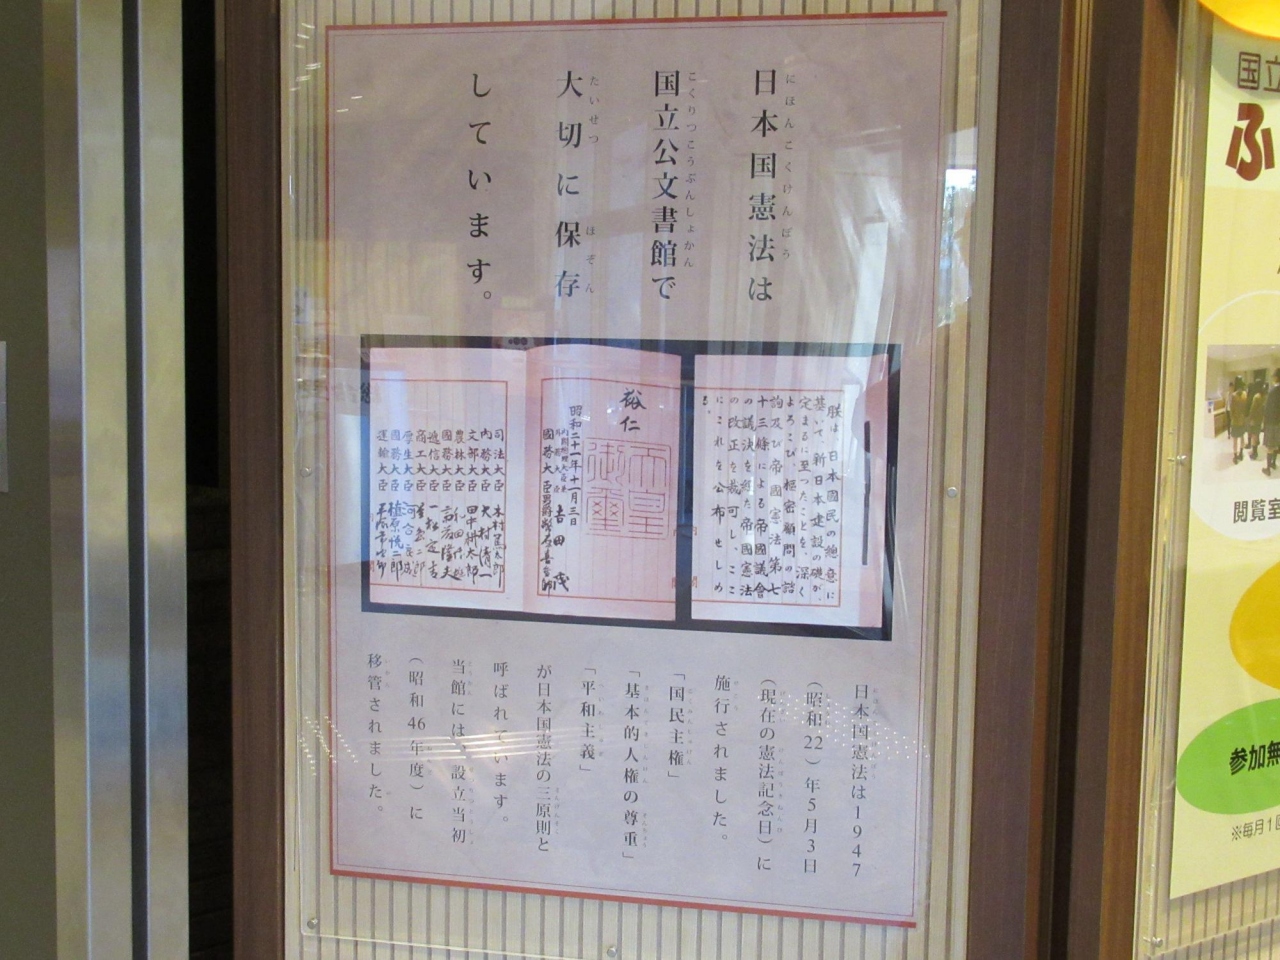 日本国憲法は
にほんこくけんぽう
国立公文書館で
こくりつこうぶんしょかん
大切に保存
たいせつ ほぞん
しています。
朕は、日本國民の總意に
基いて、新日本建設の礎が、
定まるに至つたことを、深く
よろこび、樞密顧問の諮
詢及び帝國憲法第七
十三條による帝國議會
の議決を経た帝國憲法
の改正を裁可し、ここ
にこれを公布せしめ
る。
裕仁
天皇御璽
昭和二十一年十一月三日
内閣總理大臣兼
外務大臣 吉田茂
國務大臣 男爵 幣原喜重郎
司法大臣 木村篤太郎
内務大臣 大村清一
文部大臣 田中耕太郎
農林大臣 和田博雄
國務大臣 斎藤隆夫
逓信大臣 一松定吉
商工大臣 星島二郎
厚生大臣 河合良成
國務大臣 植原悦二郎
運輸大臣 平塚常次郎
日本国憲法は1947
（昭和22）年5月3日
（現在の憲法記念日）に
施行されました。
「国民主権」
「基本的人権の尊重」
「平和主義」
が日本国憲法の三原則と
呼ばれています。
当館には、設立当初
（昭和46年度）に
移管されました。
国立
ふ
閲覧室
参加無
※毎月1回